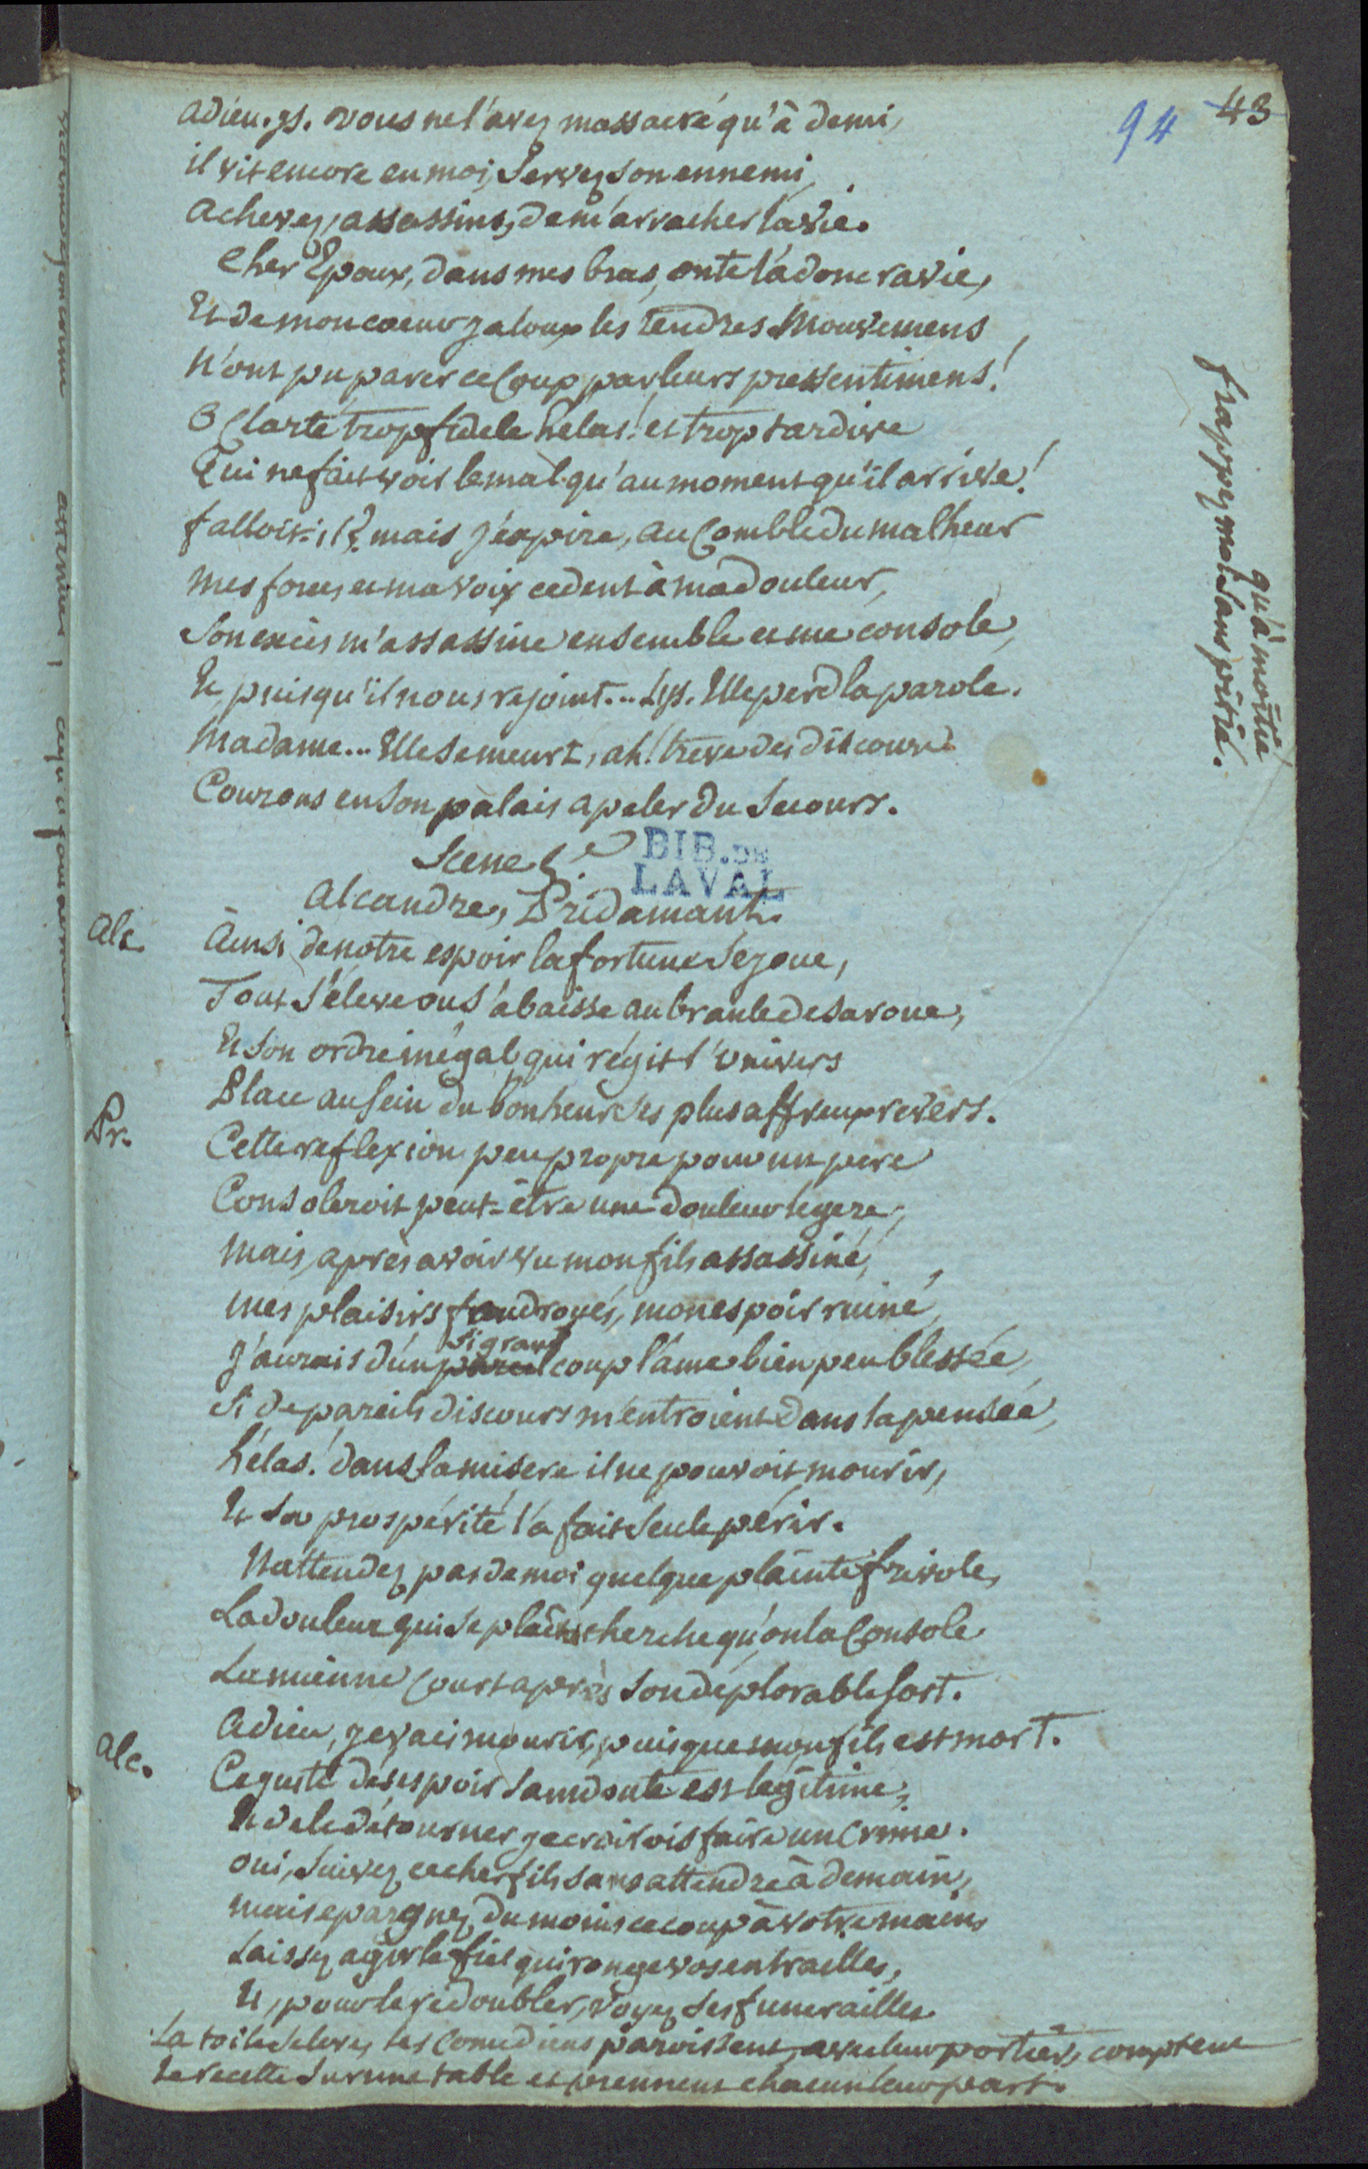 94 43
adieu. Is. vous ne l'avez massacré qu'à demi,
il vit encore en moi, servez son ennemi,
achevez, assassins, de m'arracher la vie.
Cher Epoux, dans mes bras, on te l'a donc ravie,
Et de mon coeur jaloux les tendres mouvemens
N'ont pu parer ce coup par leurs pressentimens!
O Clarté trop fidele helas! et trop tardive
Qui ne fait voir le mal qu'au moment qu'il arrive!
falloit-il? mais j'expire, au comble du malheur
mes forces et ma voix cedent à ma douleur,
Son excès m'assassine ensemble et me console,
Et puisqu'il nous rejoint... Lys. Elle perd la parole.
Madame... Elle se meurt, ah! treve des discours
Courons en son palais apeler du secours.
Scene 5e
Alcandre, Pridamant.
Alc. Ainsi de notre espoir la fortune se joue,
Tout s'éleve ou s'abaisse au branle de sa roue,
Et son ordre inégal qui régit l'univers
Place au sein du bonheur ses plus affreux revers.
Pr. Cette reflexion peu propre pour un pere
Consoleroit peut-être une douleur legere,
Mais, après avoir vu mon fils assassiné,
mes plaisirs foudroyés, mon espoir ruiné,
si grand
J'aurais d'un pareil coup l'ame bien peu blessée,
Si de pareils discours m'entroient dans la pensée,
hélas! dans sa misere il ne pouvoit mourir,
Et sa prospérité l'a fait seule périr.
N'attendez pas de moi quelque plainte frivole,
La douleur qui se plaint cherche qu'on la console
La mienne court après son déplorable sort.
Adieu, je vais mourir, puisque mon fils est mort.
Alc. Ce juste désespoir sans doute est légitime,
Et de le détourner je croirois faire un crime.
oui, suivez ce cher fils sans attendre à demain,
mais epargnez du moins ce coup à votre main,
Laissez agir le fiel qui ronge vos entrailles,
Et, pour le redoubler, voyez ses funerailles.
La toile se leve, les comediens paroissent avec leur portier, comptent
la recette sur une table et prennent chacun leur part.
qu'à moitié
frappez moi sans pitié.
BIB. DE
LAVAL